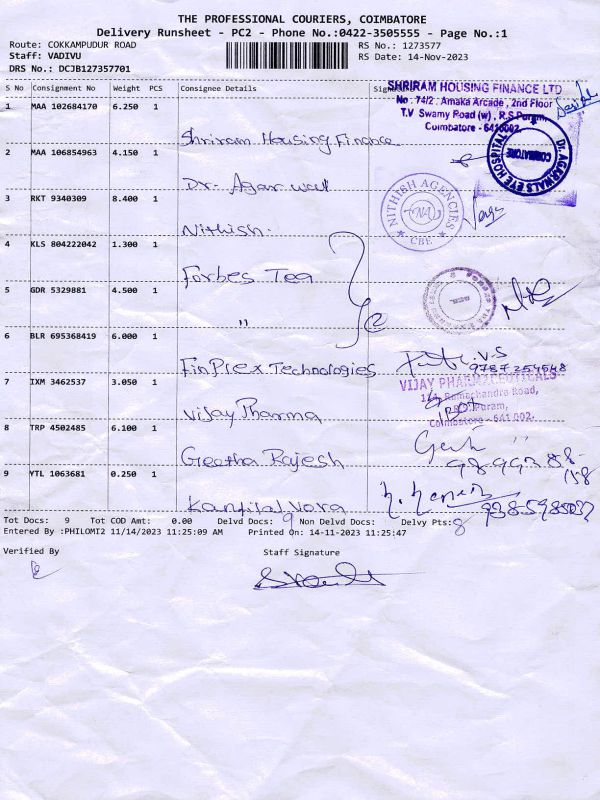 THE PROFESSIONAL COURIERS, COIMBATORE
Delivery Runsheet - PC2 - Phone No.:0422-3505555 - Page No.:1
Route: COKKAMPUDUR ROAD RS No.: 1273577
Staff: VADIVU RS Date: 14-Nov-2023
DRS No.: DCJB127357701
S No Consignment No Weight PCS Consignee Details
SHRIRAM HOUSING FINANCE LTD
No : 74/2, Amaka Arcade, 2nd Floor
T.V Swamy Road (w), R.S Puram,
Coimbatore - 641002.
1 MAA 102684170 6.250 1 Shriram Housing Finance
DR. AGARWALS EYE HOSPITAL
COIMBATORE
2 MAA 106854963 4.150 1 Dr- Agarwal
NITHISH AGENCIES
NA
CBE
3 RKT 9340309 8.400 1 Nithish.
4 KLS 804222042 1.300 1 Forbes Tea
5 GDR 5329881 4.500 1 "
6 BLR 695368419 6.000 1 FinPlex Technologies
V.S
VIJAY PHARMACEUTICALS
Ramachandra Road,
Puram,
Coimbatore - 641 002.
7 IXM 3462537 3.050 1 Vijay Pharma
8 TRP 4502485 6.100 1 Geetha Rajesh
9 VTL 1063681 0.250 1 Kantilal Vora
Tot Docs: 9 Tot COD Amt: 0.00 Delvd Docs: 9 Non Delvd Docs: Delvy Pts: 8
Entered By :PHILOMI2 11/14/2023 11:25:09 AM Printed On: 14-11-2023 11:25:47
Verified By Staff Signature